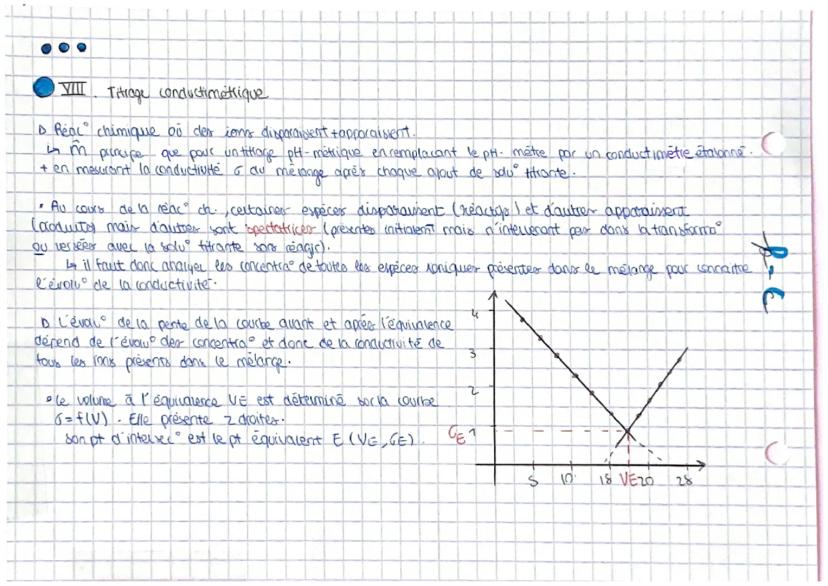 VIII. Titrage conductimétrique
Réac° chimique où des ions disparaissent + apparaissent.
↳ m̂ principe que pour un titrage pH-métrique en remplacant le pH-mètre par un conductimètre étalonné.
+ en mesurant la conductivité σ du mélange après chaque ajout de solu° titrante.
• Au cours de la réac° ch, certaines espèces disparaissent (réactifs) et d'autres apparaissent
(produits) mais d'autres sont spectatrices (présentes initialemt mais n'intervenant pas dans la transforma°
ou versées avec la solu° titrante sans réagir).
↳ il faut donc analyser les concentra° de toutes les espèces ioniques présentes dans le mélange pour connaitre
l'évolu° de la conductivité.
P-C
L'évolu° de la pente de la courbe avant et après l'équivalence
dépend de l'évolu° des concentra° et donc de la conductivité de
tous les ions présents dans le mélange.
• Le volume à l'équivalence VE est déterminé sur la courbe
σ = f(V). Elle présente 2 droites.
Son pt d'intersec° est le pt équivalent E (VE, σE).
4
3
2
σE 1
5 10 18 VE 20 28